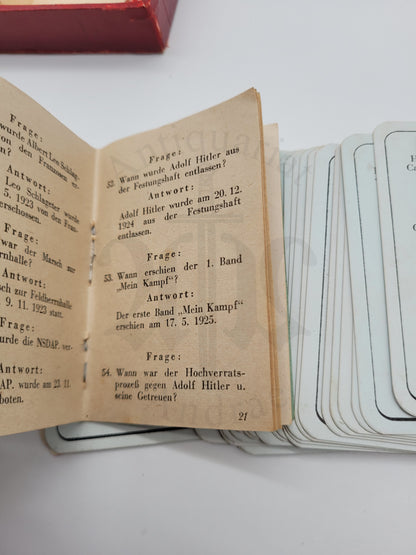 Frage:
wurde Albert Leo Schlag-
von den Franzosen er-
Antwort:
Leo Schlageter wurde
5. 1923 von den Fran-
erschossen.
Frage:
war der Marsch zur
errnhalle?
Antwort:
sch zur Feldherrnhalle
9. 11. 1923 statt.
Frage:
wurde die NSDAP. ver-
Antwort:
AP. wurde am 23. 11.
boten.
Frage:
52. Wann wurde Adolf Hitler aus
der Festungshaft entlassen?
Antwort:
Adolf Hitler wurde am 20. 12.
1924 aus der Festungshaft
entlassen.
Frage:
53. Wann erschien der 1. Band
„Mein Kampf"?
Antwort:
Der erste Band „Mein Kampf"
erschien am 17. 5. 1925.
Frage:
54. Wann war der Hochverrats-
prozeß gegen Adolf Hitler u.
seine Getreuen?
21